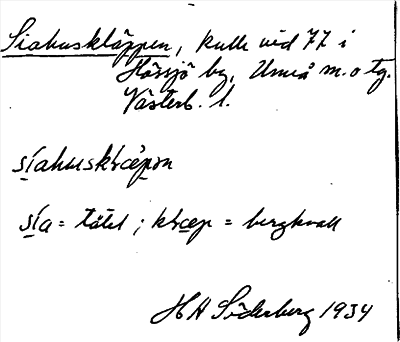 Siahuskläppen, kulle vid 77 i
Hössjö by, Umeå m. o tg.
Västerb. l.
síahuskłæ̀pən
sía = tätel ; kłæp = bergknall
H A Söderberg 1934